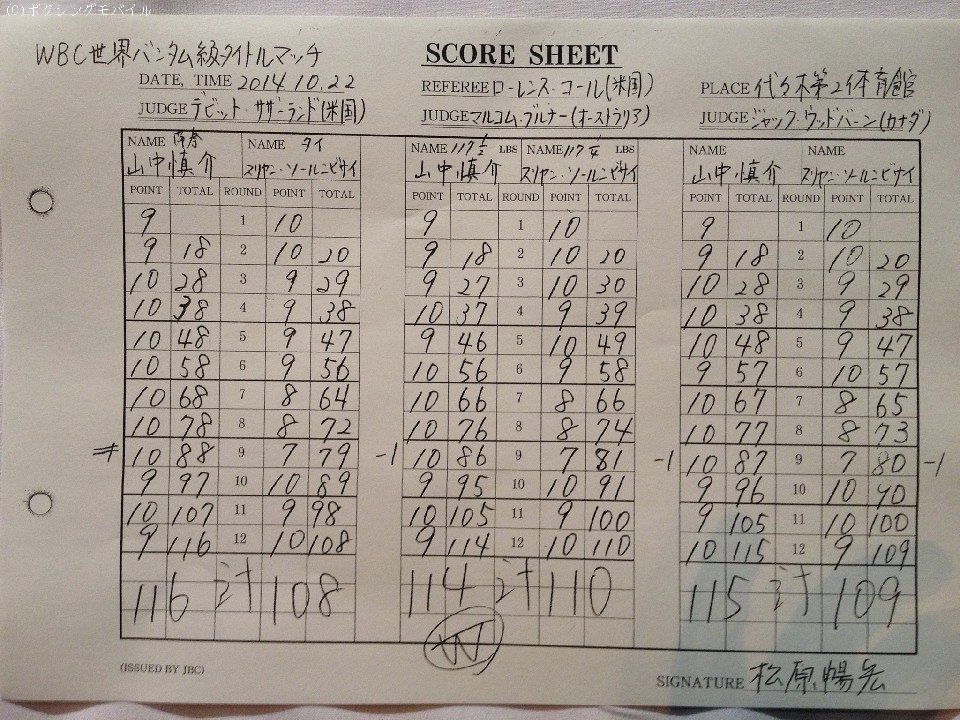 (C)ボクシングモバイル
WBC世界バンタム級タイトルマッチ
SCORE SHEET
DATE, TIME 2014.10.22 REFEREE ローレンス・コール(米国) PLACE 代々木第2体育館
JUDGE デビット・サザーランド(米国) JUDGE マルコム・ブルナー(オーストラリア) JUDGE ジャック・ウッドバーン(カナダ)
NAME NAME タイ NAME 117 1/2 LBS NAME 117 1/4 LBS NAME NAME
山中慎介 スリヤン・ソールンビサイ 山中慎介 スリヤン・ソールンビサイ 山中慎介 スリヤン・ソールンビサイ
POINT TOTAL ROUND POINT TOTAL POINT TOTAL ROUND POINT TOTAL POINT TOTAL ROUND POINT TOTAL
9 1 10 9 1 10 9 1 10
9 18 2 10 20 9 18 2 10 20 9 18 2 10 20
10 28 3 9 29 9 27 3 10 30 10 28 3 9 29
10 38 4 9 38 10 37 4 9 39 10 38 4 9 38
10 48 5 9 47 9 46 5 10 49 10 48 5 9 47
10 58 6 9 56 10 56 6 9 58 9 57 6 10 57
10 68 7 8 64 10 66 7 8 66 10 67 7 8 65
10 78 8 8 72 10 76 8 8 74 10 77 8 8 73
10 88 9 7 79 -1 10 86 9 7 81 -1 10 87 9 7 80 -1
9 97 10 10 89 9 95 10 10 91 9 96 10 10 90
10 107 11 9 98 10 105 11 9 100 9 105 11 10 100
9 116 12 10 108 9 114 12 10 110 10 115 12 9 109
116 計 108 114 計 110 115 計 109
(ISSUED BY JBC)
SIGNATURE 松原暢宏